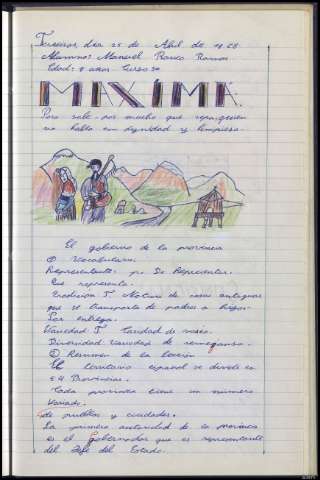 Terceiros, día 25 de Abril de 1968
Alumno: Manuel Franco Ramos
Edad: 9 años Curso 3º
MAXIMA.
Poco sale por mucho que
no habla con dignidad y limpieza.
El gobierno de la provincia
① Vocabulario.
Representante: p. De Representar.
Que representa.
Tradicion F. Noticia de cosas antiguas
que se transporta de padres a hijos.
Por entrega.
Variedad F. Caridad de
Diversidad. Variedad de
② Resumen de la lección
El territorio español se divide en
54 Provincias.
Cada provincia tiene un número
variado.
de pueblos y ciudades.
La primera autoridad de la provincia
es el gobernador que es representante
del Jefe del Estado.